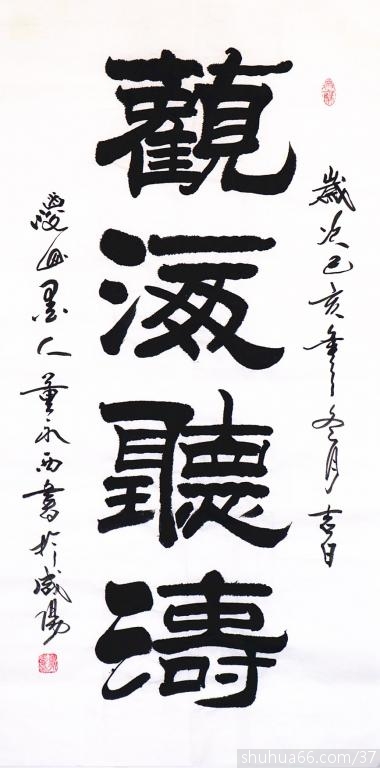 歲次己亥年之冬月吉日
觀海聽濤
山墨人董永西書於咸陽
shuhua66.com/37